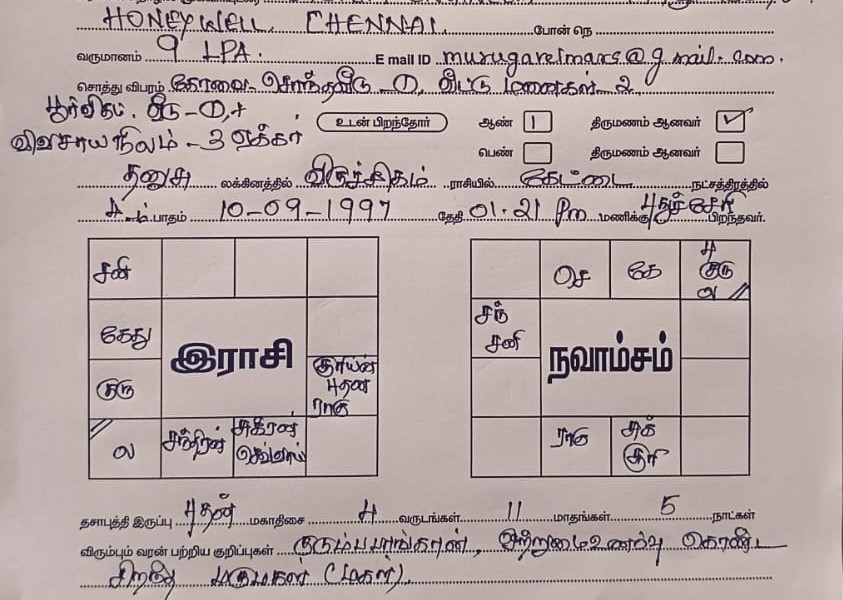 HONEYWELL, CHENNAI. போன் நெ
வருமானம் 9 LPA. E mail ID murugavelmars@gmail.com.
சொத்து விபரம் கோவை சொந்தவீடு ①, வீட்டு மனைகள் 2
பூர்விகம். வீடு-①,+
உடன் பிறந்தோர் ஆண் 1 திருமணம் ஆனவர் ✓
விவசாய நிலம் - 3 ஏக்கர்
பெண் திருமணம் ஆனவர்
தனுசு லக்கினத்தில் விருச்சிகம் ராசியில் கேட்டை நட்சத்திரத்தில்
4-ம் பாதம் 10-09-1997 தேதி 01.21 Pm மணிக்கு புதுச்சேரி பிறந்தவர்.
சனி
செ கே பு குரு ல
கேது இராசி
சந் சனி நவாம்சம்
குரு சூரியன் புதன் ராகு
ல சந்திரன் சுக்ரன் செவ்வாய்
ராகு சுக் சூரி
தசாபுத்தி இருப்பு புதன் மகாதிசை 4 வருடங்கள் 11 மாதங்கள் 5 நாட்கள்
விரும்பும் வரன் பற்றிய குறிப்புகள் குடும்பபாங்கான, ஒற்றுமை உணர்வு கொண்ட
சிறந்த மருமகள் (மகள்).